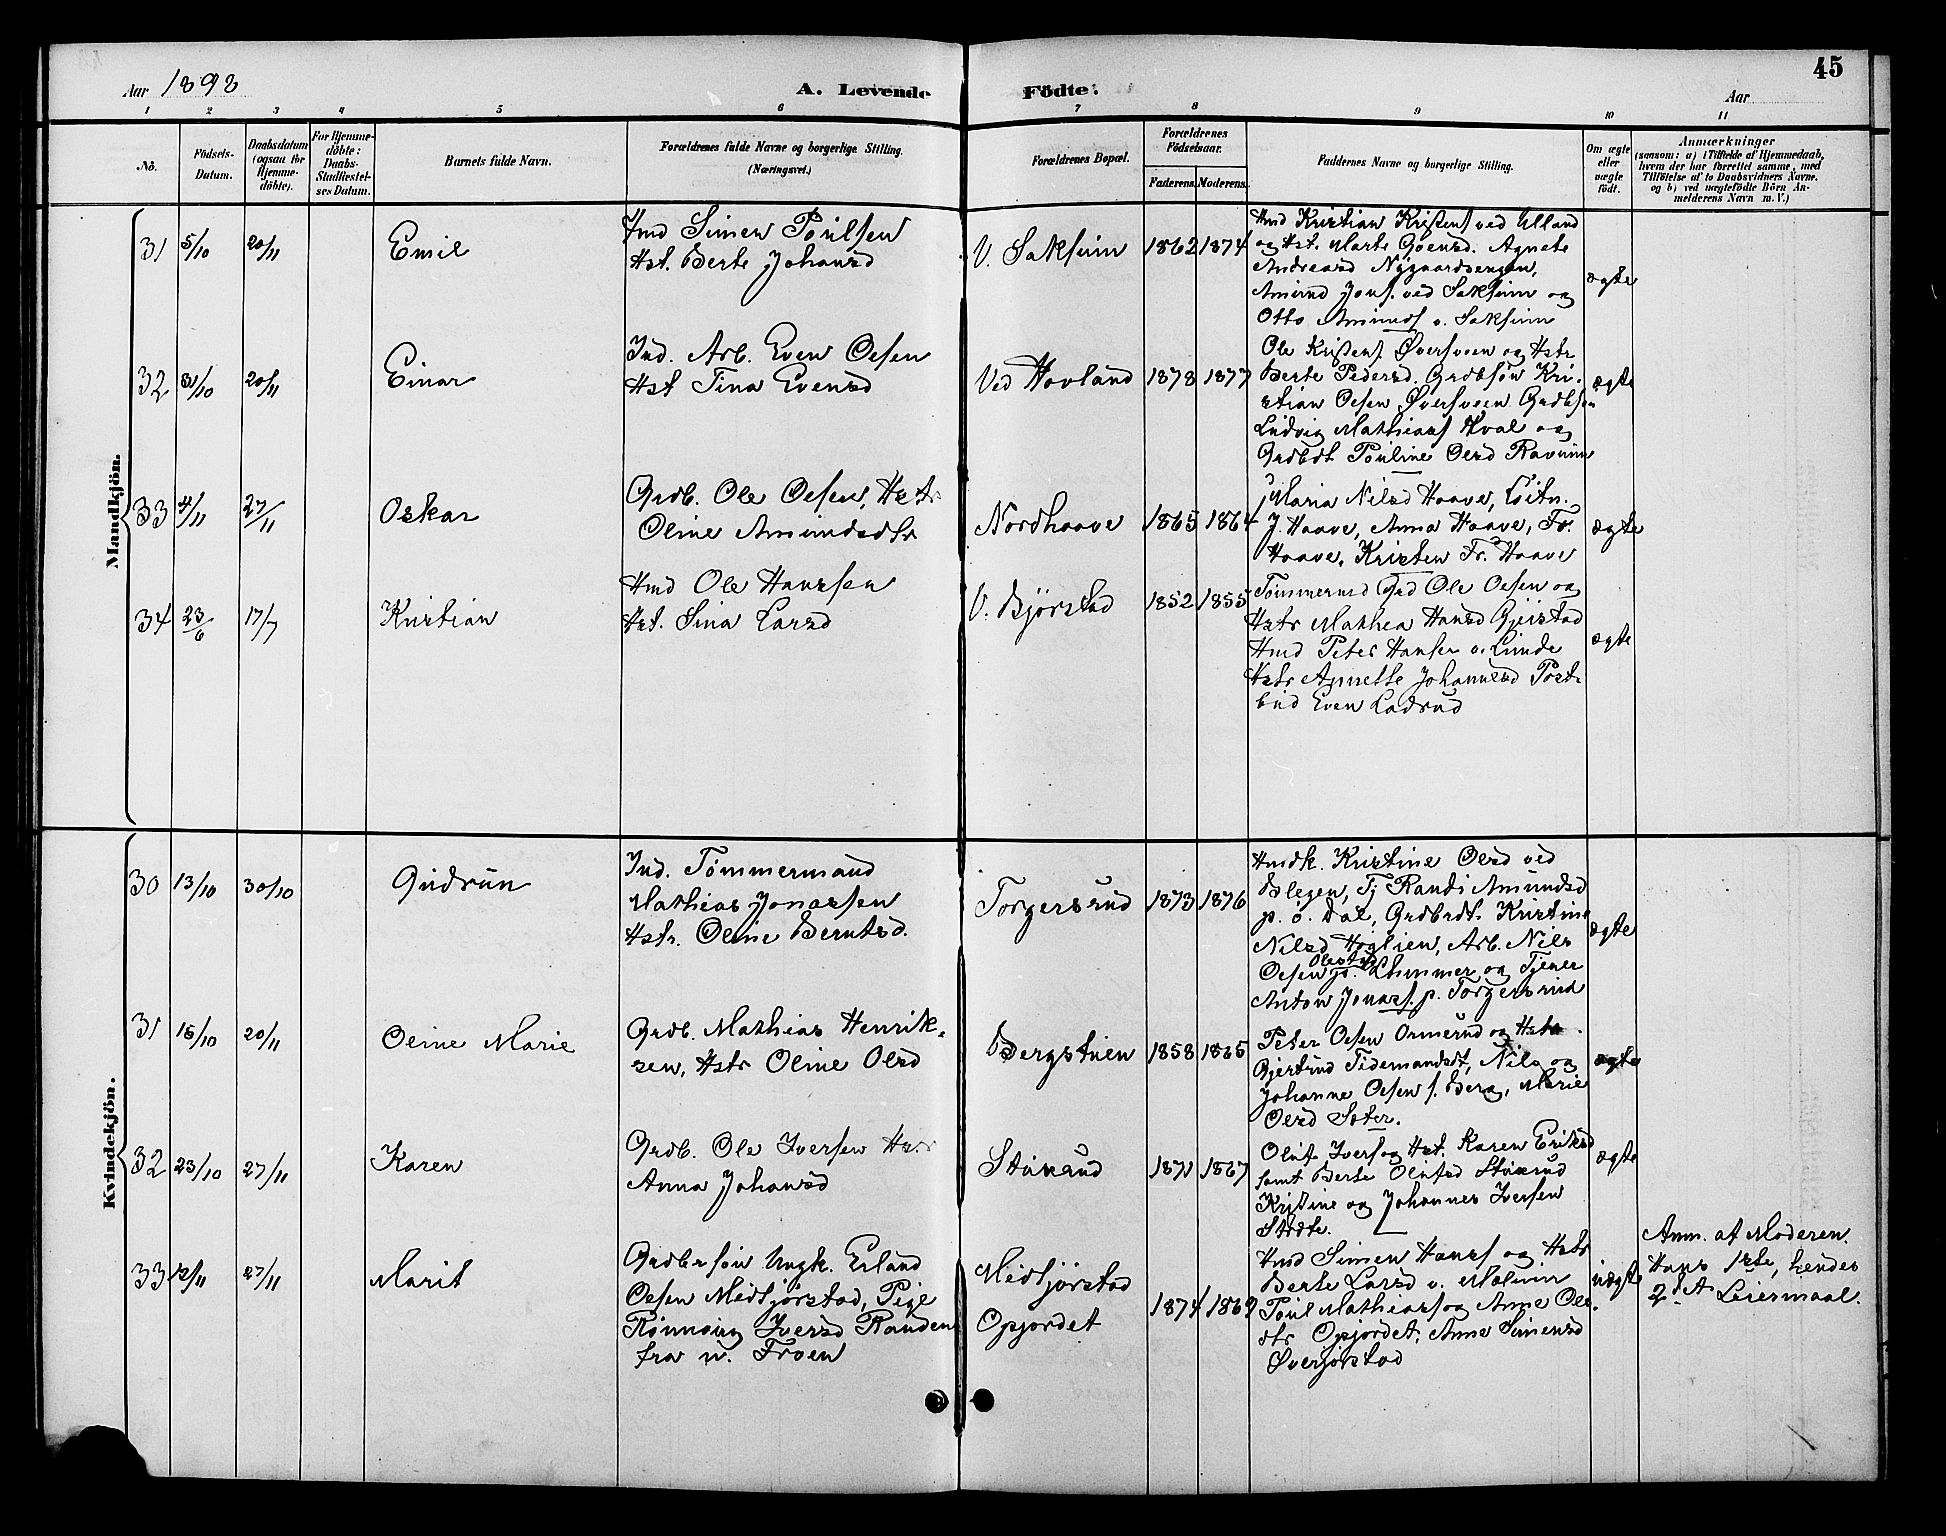 Aar 1898
A. Levende Födte.
45
Aar
1 2 3 4 5 6 7 8 9 10 11
No.
Födsels-Datum.
Daabsdatum (ogsaa for Hjemme-döbte).
For Hjemme-döbte: Daabs-Stadfæstel-ses Datum.
Barnets fulde Navn.
Forældrenes fulde Navne og borgerlige Stilling.
(Næringsvei.)
Forældrenes Bopæl.
Forældrenes Födselsaar.
Faderens. Moderens.
Faddernes Navne og borgerlige Stilling.
Om ægte eller uægte födt.
Anmærkninger
(saasom: a) i Tilfælde af Hjemmedaab, hvem der har forrettet samme, med Tilföielse af to Daabsvidners Navne. og b) ved uægtefödte Börn An-melderens Navn m. V.)
Mandkjön.
31 5/10 20/11 Emil
Hmd Simen Poulsen
Hst. Berte Johansd
V. Saksum 1862 1874
Hmd Kristian Kristens ved Ulland
og Hst. Marte Goensd. Agnete
Andreasd Nygaardsengen,
Amund Jons. ved Saksum og
Otto Amunds v. Saksum
ægte
32 /10 20/11 Einar
Ind. Arb. Even Olsen
Hst Tina Evensd
Ved Hovland 1878 1877
Ole Kristens. Øversveen og Hstr
Berte Pedersd. Grdbsøn Kri-
stian Olsen Øversveen Grdbsøn
Ludvig Mathiass Hval og
Grdbdt Pouline Olsd Ravnum
ægte
33 4/11 27/11 Oskar
Grdb. Ole Olsen, Hstr
Oline Amundsdtr
Nordhaave 1865 1864
Maria Nilsd Haave, Løitn.
J. Haave, Anna Haave, Fr.
Haave, Kristen Fr. Haave
ægte
34 23/6 17/7 Kristian
Hmd Ole Hanssen
Hst. Sina Larsd
V. Bjørstad 1852 1855
Tømmermd Grd Ole Olsen og
Hstr Mathea Hansd Gjeistad
Hmd Peter Hansen v. Lunde
Hstr Agnette Johannesd Post-
bud Even Ladrud
ægte
Kvindekjön.
30 13/10 30/10 Gudrun
Ind. Tømmermand
Mathias Jonassen
Hstr. Oline Berntsd.
Torgersrud 1873 1876
Hmdk. Kristine Olsd ved
Blegen, Tj Randi Amundsd
p. ö. Dal, Grdbrdt. Kristine
Nilsd Høglien, Arb. Nils
Olsen Olestad p. Lhmmer og Tjener
Anton Jonass. p. Torgersrud
ægte
31 15/10 20/11 Oline Marie
Grdb. Mathias Henrik-
sen, Hstr Oline Olsd
Bergstuen 1858 1865
Peter Olsen Ormerud og Hstr.
Gjertrud Tidemandsdt, Nils og
Johanne Olsen s. Berg, Marie
Olsd Sæter.
ægte
32 23/10 27/11 Karen
Grdb. Ole Iversen Hstr
Anna Johansd
Staxrud 1871 1867
Oluf Ivers og Hst. Karen Eriksd
samt Berte Olufsd Staxrud
Kristine og Johannes Iversen
Stødte.
ægte
33 12/11 27/11 Marit
Grdbersøn Ungk. Erland
Olsen Medtjørstad, Pige
Rønnaug Iversd Randen
fra n. Froen
Medtjørstad
Opjordet
1874 1869
Hmd Simen Hanss og Hstr
Berte Larsd v. Mælum
Poul Mathiass og Anne Ols-
dtr Opjordet, Anne Simensd
Øverjørstad
uægte
Anm. af Moderen.
Hans 1ste, hendes
2det Leiermaal.